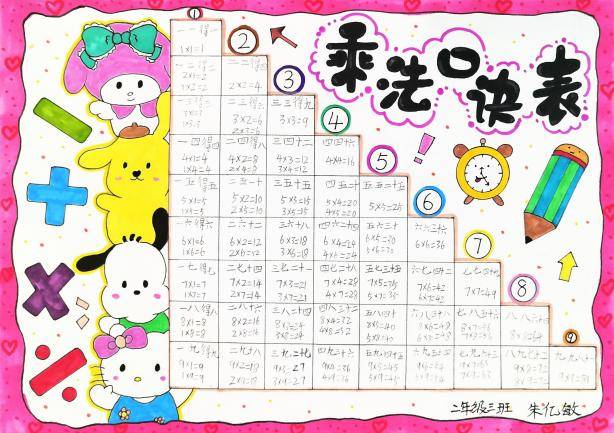 乘法口诀表
①
一一得一
1×1=1
②
一二得二 二二得四
2×1=2 2×2=4
1×2=2
③
一三得三 二三得六 三三得九
3×2=6 3×3=9
1×3=3 2×3=6
④
一四得四 二四得八 三四十二 四四十六
4×1=4 4×2=8 4×3=12 4×4=16
1×4=4 2×4=8 3×4=12
⑤
一五得五 二五一十 三五十五 四五二十 五五二十五
5×1=5 5×2=10 5×3=15 5×4=20 5×5=25
1×5=5 2×5=10 3×5=15 4×5=20
⑥
一六得六 二六十二 三六十八 四六二十四 五六三十 六六三十六
6×1=6 6×2=12 6×3=18 6×4=24 6×5=30 6×6=36
1×6=6 2×6=12 3×6=18 4×6=24 5×6=30
⑦
一七得七 二七十四 三七二十一 四七二十八 五七三十五 六七四十二 七七四十九
7×1=7 7×2=14 7×3=21 7×4=28 7×5=35 7×6=42 7×7=49
1×7=7 2×7=14 3×7=21 4×7=28 5×7=35 6×7=42
⑧
一八得八 二八十六 三八二十四 四八三十二 五八四十 六八四十八 七八五十六 八八六十四
8×1=8 8×2=16 8×3=24 8×4=32 8×5=40 8×6=48 8×7=56 8×8=64
1×8=8 2×8=16 3×8=24 4×8=32 5×8=40 6×8=48
⑨
一九得九 二九十八 三九二十七 四九三十六 五九四十五 六九五十四 七九六十三 八九七十二 九九八十一
9×1=9 9×2=18 9×3=27 9×4=36 9×5=45
1×9=9 2×9=18 3×9=27 4×9=36 5×9=45
二年级三班 朱亿敏